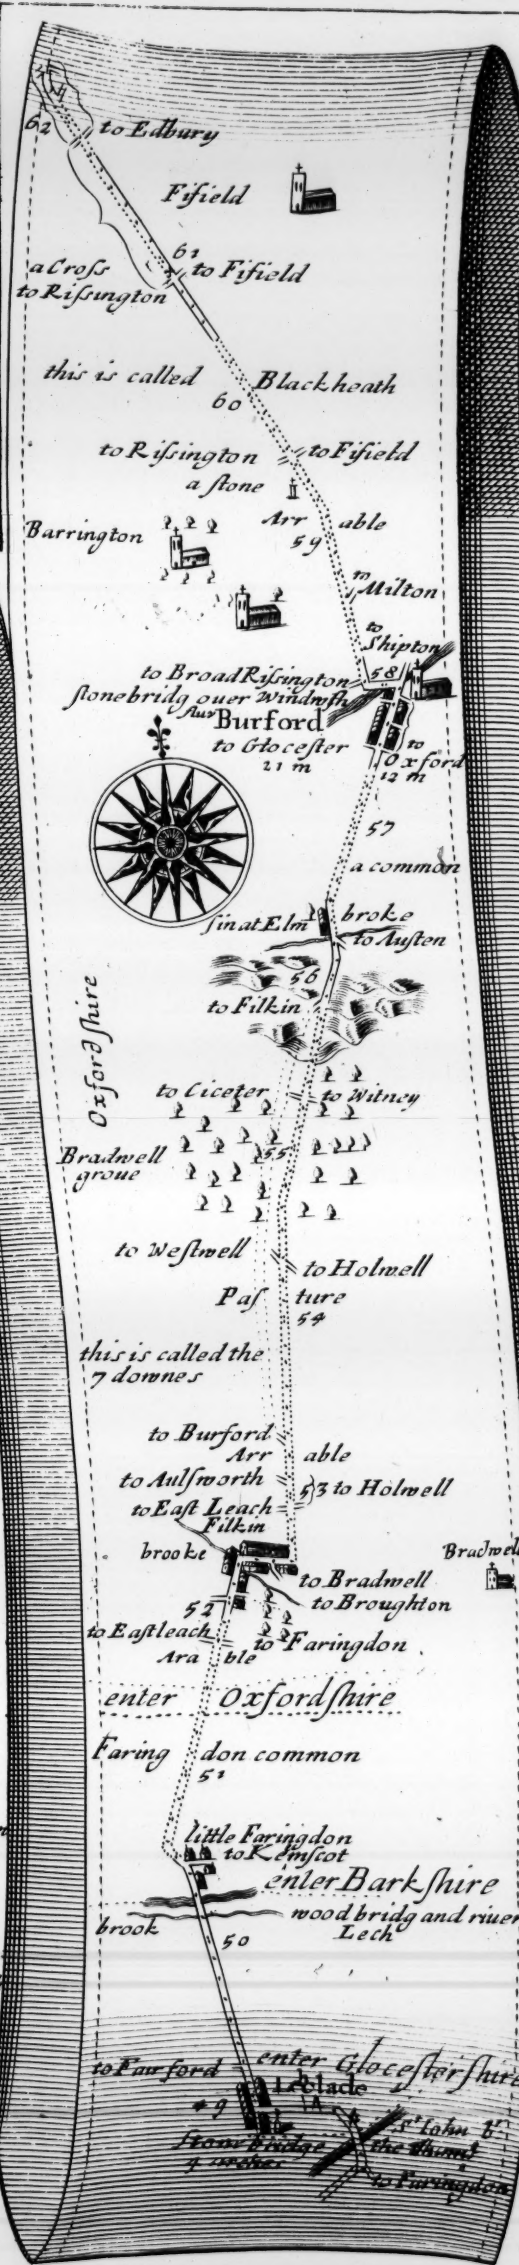 62 to Edbury
Fifield
61
a Cross to Fifield
to Riſsington
this is called Blackheath
60
to Riſsington to Fifield
a ſtone
Arr able
Barrington 59
m Milton
to
Shipton
to Broad Riſsington 58
ſtonebridg ouer Windruſh
fluv Burford
to Glocester to
21 m Oxford
12 m
57
a common
ſinat Elm broke
to Auſten
56
to Filkin
Oxfordſhire
to Ciceter to Witney
55
Bradwell
groue
to Weſtwell
to Holwell
Paſ ture
54
this is called the
7 downes
to Burford
Arr able
to Aulſworth 53 to Holwell
to Eaſt Leach
Filkin
brooke Bradwell
to Bradwell
52 to Broughton
to Eaſtleach to Faringdon
Ara ble
enter Oxfordſhire
Faring don common
51
little Faringdon
to Kemſcot
enter Barkſhire
brook wood bridg and river
50 Lech
to Fairford enter Gloceſterſhire
49 Leclade
St Iohn br
Stone bridge the
4 arches
to Faringdon